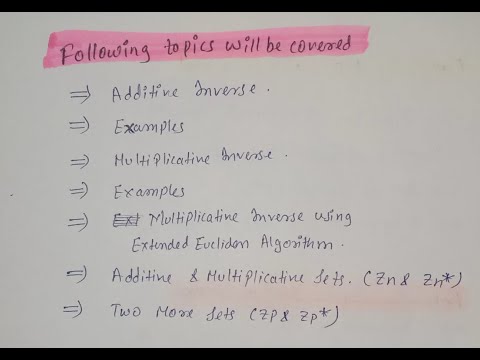 Following topics will be covered
⇒ Additive Inverse.
⇒ Examples
⇒ Multiplicative Inverse.
⇒ Examples
⇒ Multiplicative Inverse using
Extended Euclidean Algorithm.
⇒ Additive & Multiplicative Sets. (Zn & Zn*)
⇒ Two More Sets (Zp & Zp*)